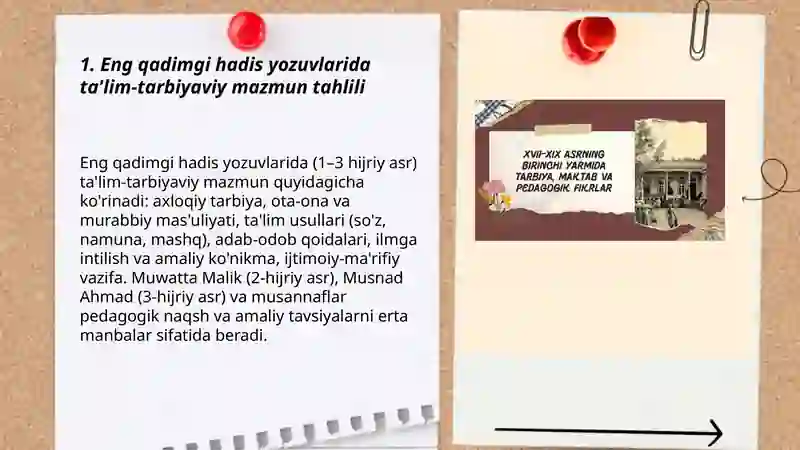 1. Eng qadimgi hadis yozuvlarida
ta'lim-tarbiyaviy mazmun tahlili
Eng qadimgi hadis yozuvlarida (1–3 hijriy asr)
ta'lim-tarbiyaviy mazmun quyidagicha
ko'rinadi: axloqiy tarbiya, ota-ona va
murabbiy mas'uliyati, ta'lim usullari (so'z,
namuna, mashq), adab-odob qoidalari, ilmga
intilish va amaliy ko'nikma, ijtimoiy-ma'rifiy
vazifa. Muwatta Malik (2-hijriy asr), Musnad
Ahmad (3-hijriy asr) va musannaflar
pedagogik naqsh va amaliy tavsiyalarni erta
manbalar sifatida beradi.
XVII-XIX ASRNING
BIRINCHI YARMIDA
TARBIYA, MAKTAB VA
PEDAGOGIK FIKRLAR